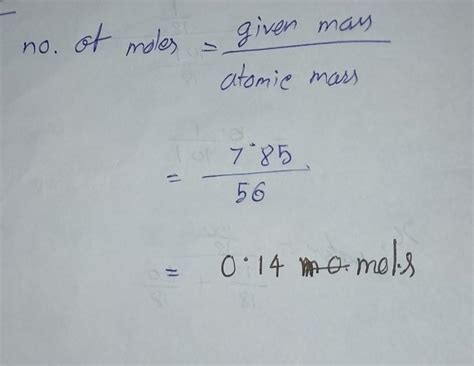 no. of moles = given mass
atomic mass
= 7.85
56
= 0.14 mols